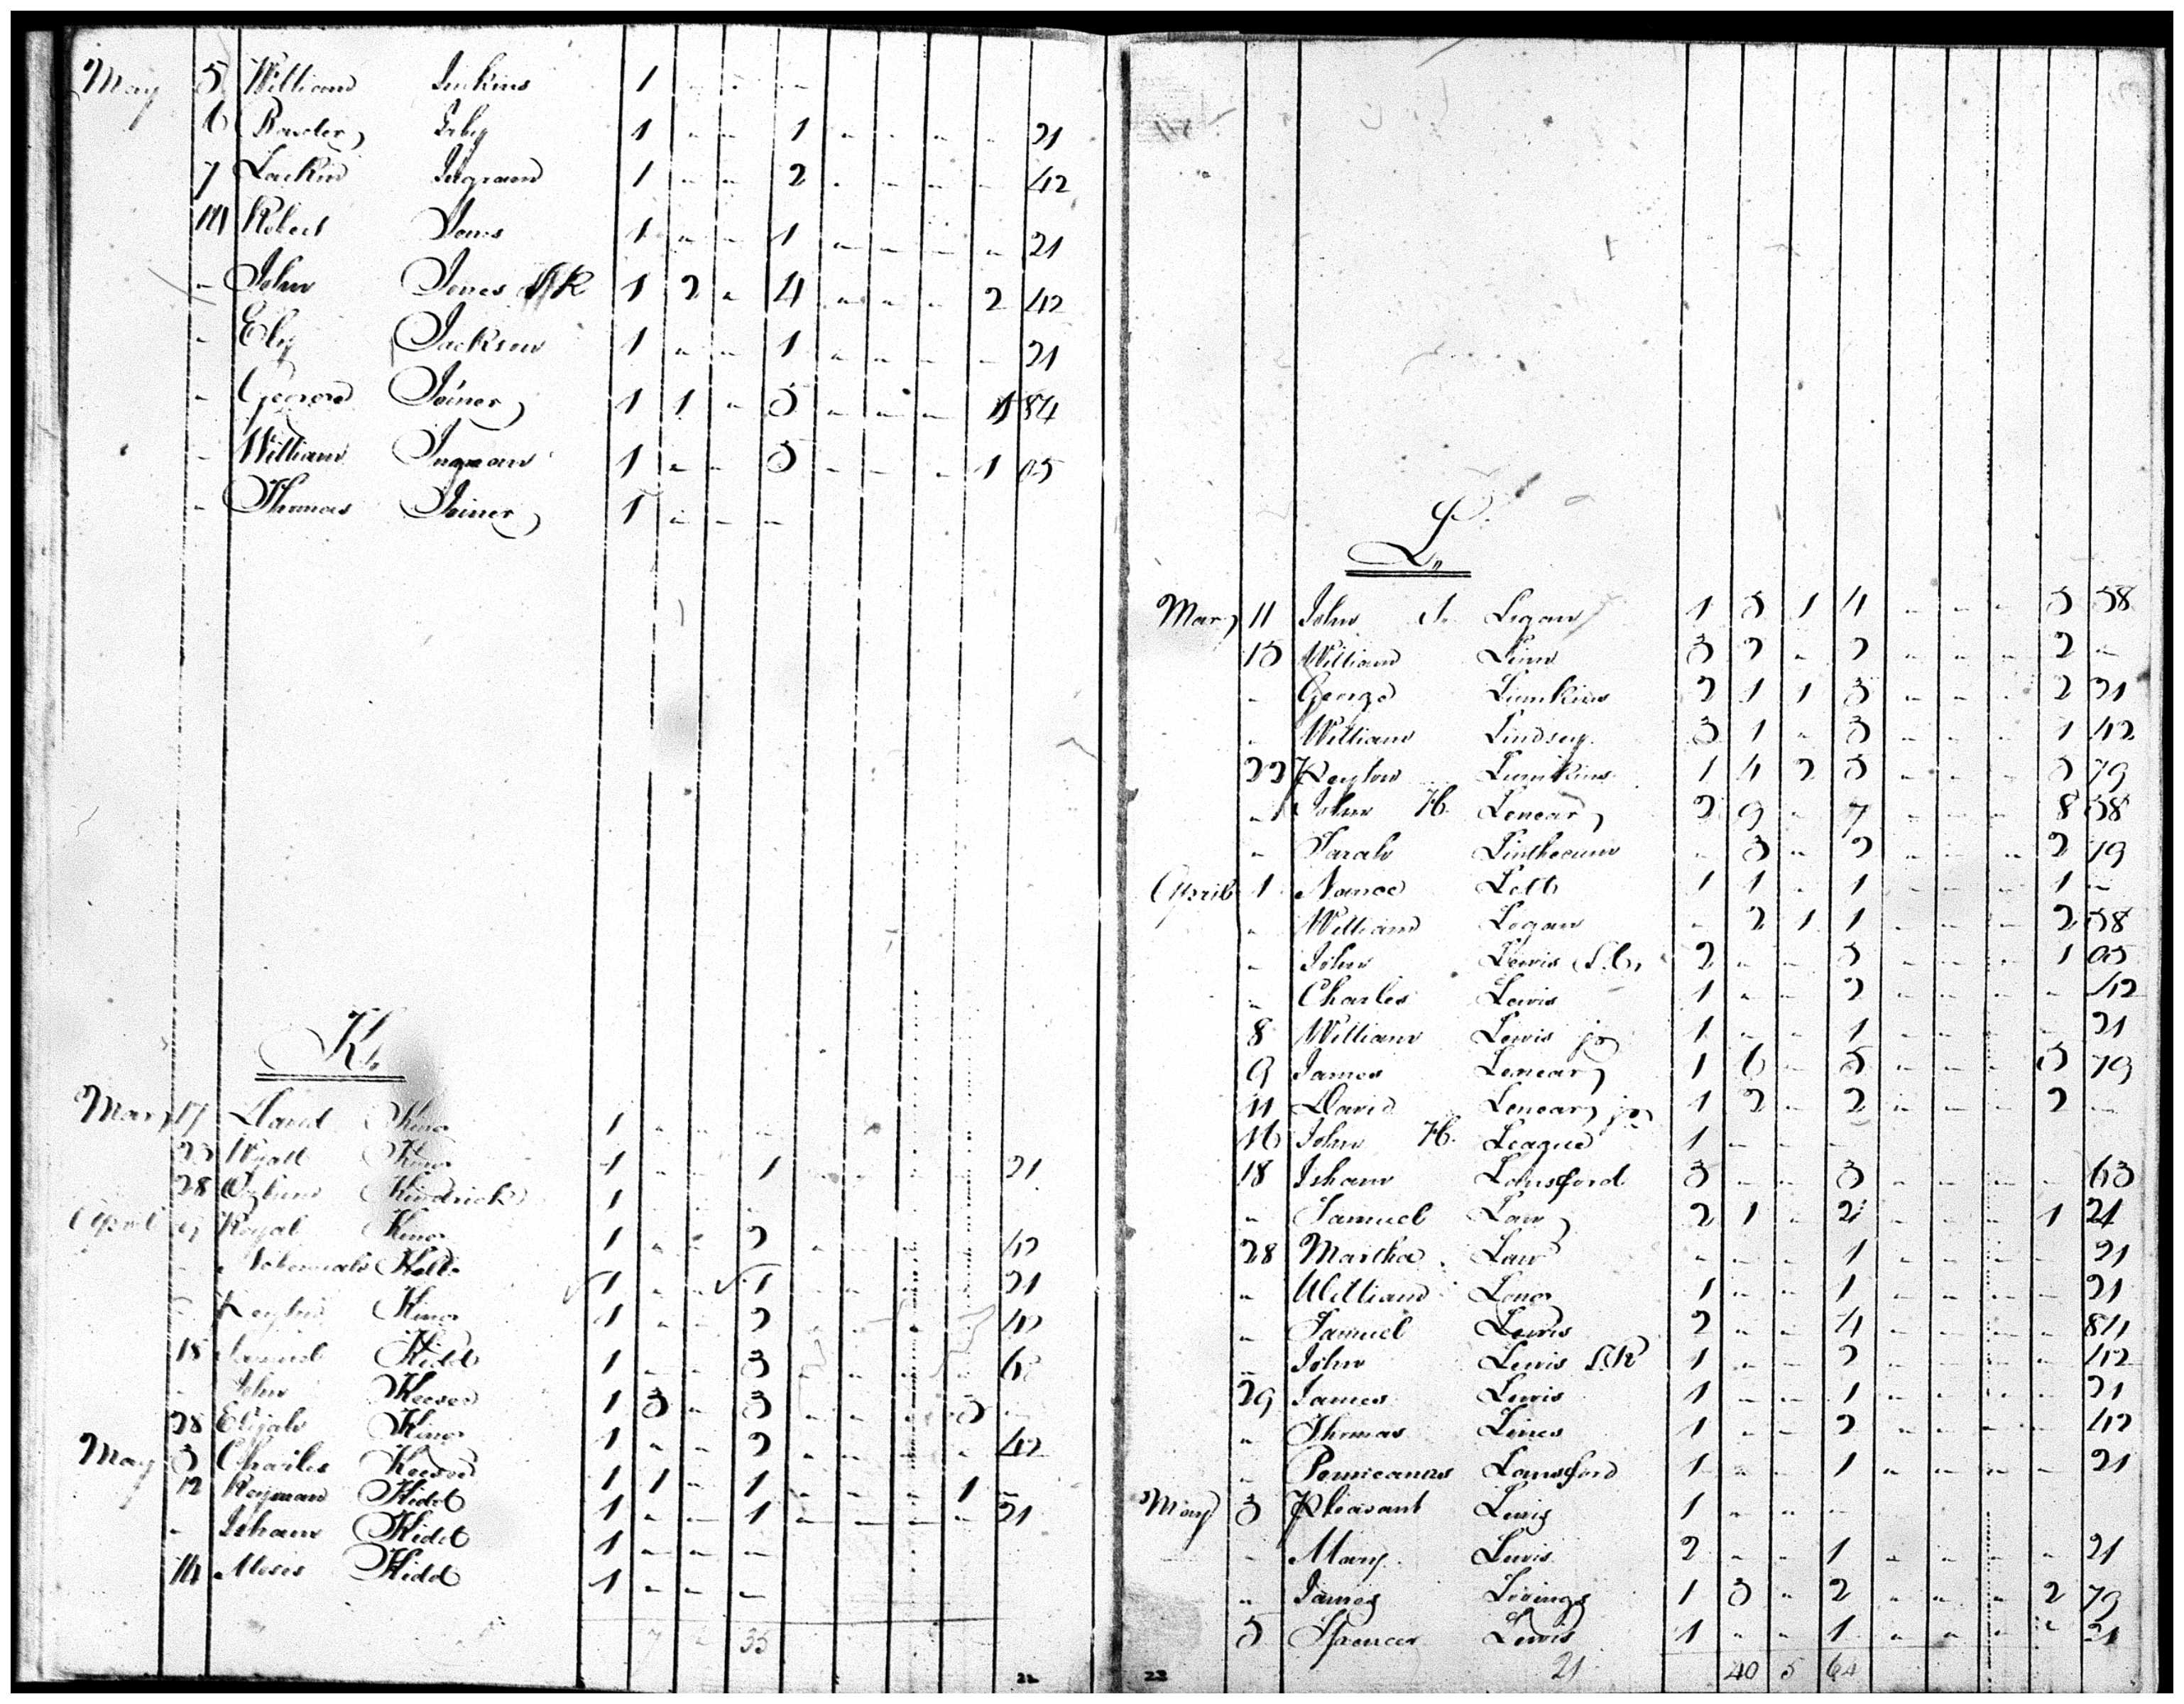 May 5 William Jinkins 1 " " "
6 Irby 1 " " 1 " " " " 21
7 Larkin Ingram 1 " " 2 " " " " 42
14 Robert Jones 1 " " 1 " " " " 21
" John Jones 1 2 " 4 " " " 2 42
" Ely Jackson 1 " " 1 " " " " 21
" George Joiner 1 1 " 5 " " " 1 84
" William Ingram 1 " " 5 " " " 1 05
" Thomas Joiner 1 " " "
K.
Mar 17 David King 1 " " "
23 Wyatt King 1 " " 1 " " " " 21
28 Kindrick 1 " " "
April Royal King 1 " " 2 " " " " 42
" Nehemiah Holt 1 " " 1 " " " " 21
" King 1 " " 2 " " " " 42
18 Kidd 1 " " 3 " " " " 63
" John Keesee 1 3 " 3 " " " 3 "
28 Elijah King 1 " " 2 " " " " 42
May 3 Charles Keesee 1 1 " 1 " " " 1 "
12 Kidd 1 " " 1 " " " " 21
" Isham Kidd 1 " " "
14 Moses Kidd 1 " " "
7 35
22
L.
Mar 11 John Logan 1 3 1 4 " " " 3 58
15 William Linn 3 2 " 2 " " " 2 "
" George Lumkins 2 1 1 3 " " " 2 21
" William Lindsey 3 1 " 3 " " " 1 42
22 Lumkins 1 4 2 5 " " " 5 79
" John H. Lenear 2 9 " 7 " " " 8 58
" Sarah Linthecum " 3 " 2 " " " 2 79
April 1 Nance 1 1 " 1 " " " 1 "
" William Logan " 2 1 1 " " " 2 58
" John Lewis 2 " " 5 " " " 1 05
" Charles Lewis 1 " " 2 " " " " 42
8 William Lewis jr 1 " " 1 " " " " 21
9 James Lenear 1 6 " 5 " " " 5 79
11 David Lenear jr 1 2 " 2 " " " 2 "
16 John H. League 1 " " "
18 Isham Lansford 3 " " 3 " " " " 63
" Samuel Law 2 1 " 2 " " " 1 21
28 Martha Law " " " 1 " " " " 21
" William Long 1 " " 1 " " " " 21
" Samuel Lewis 2 " " 4 " " " " 84
" John Lewis 1 " " 2 " " " " 42
29 James Lewis 1 " " 1 " " " " 21
" Thomas Lines 1 " " 2 " " " " 42
" Lansford 1 " " 1 " " " " 21
May 3 Pleasant Lewis 1 " " "
" Mary Lewis 2 " " 1 " " " " 21
" James 1 3 " 2 " " " 2 79
5 Spencer Lewis 1 " " 1 " " " " 21
21 40 5 64
23